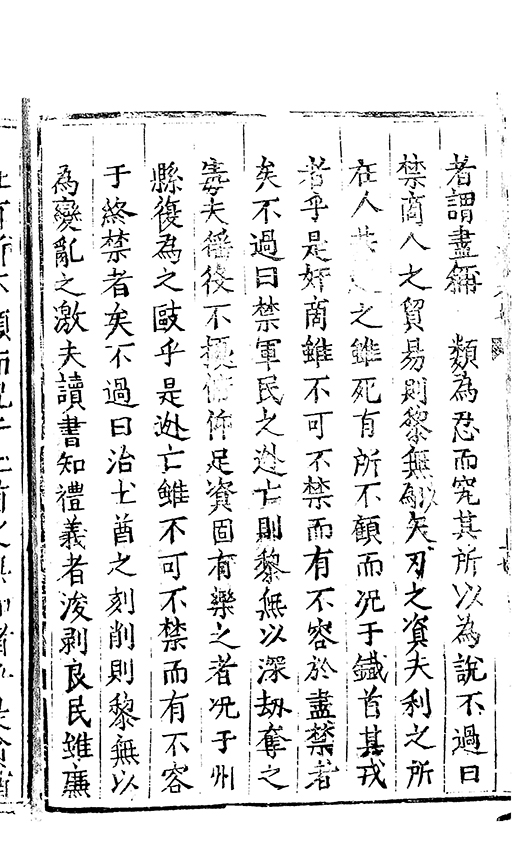 者謂盡穪類為忍而究其所以為說不過曰
禁商人之貿易則黎無以矢刃之資夫利之所
在人共之雖死有所不顧而况于鐡首其戎
者乎是奸商雖不可不禁而有不容於盡禁者
矣不過曰禁軍民之逃亡則黎無以深刼奪之
毒夫徭役不擾俯仰足資固有樂之者况于州
縣復為之敺乎是逃亡雖不可不禁而有不容
于終禁者矣不過曰治土酋之刻削則黎無以
為變亂之激夫讀書知禮義者浚剥良民雖廉